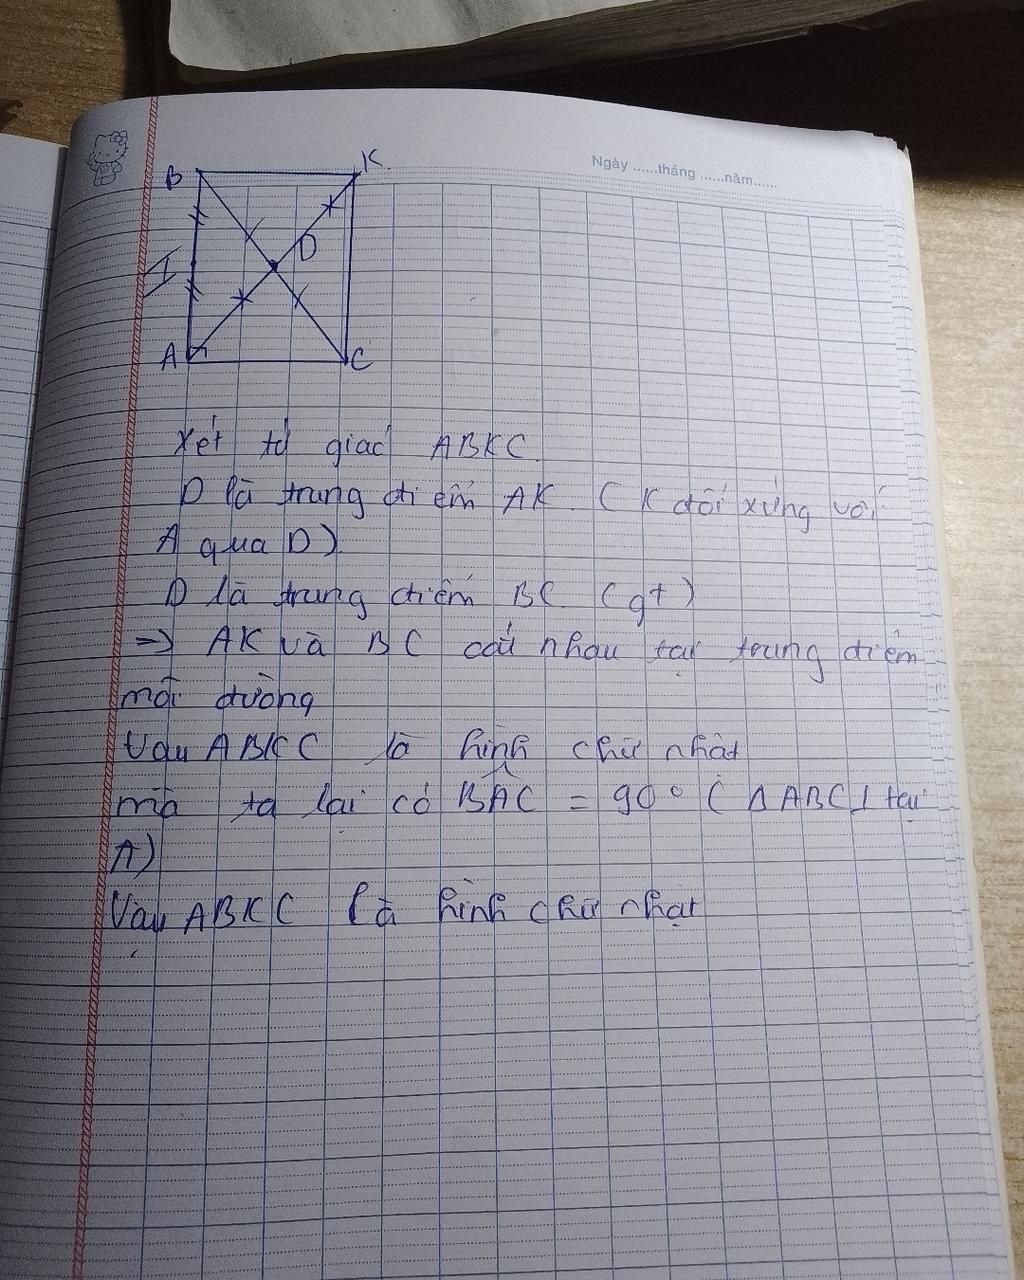 Ngày ......tháng ......năm......
B
K
D
I
A
C
Xét tứ giác ABKC
D là trung điểm AK. (K đối xứng với
A qua D)
D là trung điểm BC (gt)
=> AK và BC cắt nhau tại trung điểm
mỗi đường
Vậy ABKC là hình chữ nhật
mà ta lại có BÂC = 90° (Δ ABC ⊥ tại
A)
Vậy ABKC là hình chữ nhật